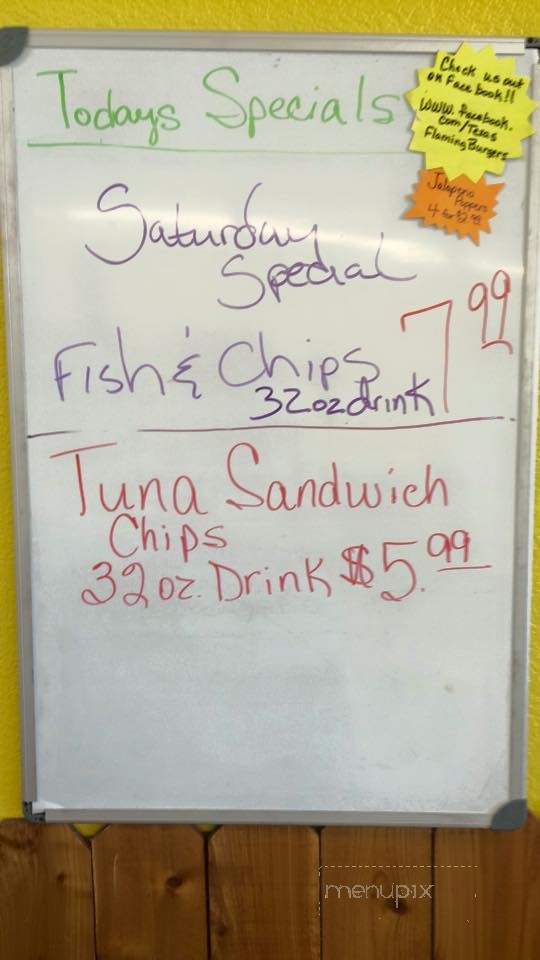 Todays Specials
Check us out
on Facebook!!
www.facebook.
com/Texas
Flaming Burgers
Jalapeno
Poppers
4 for $2.99
Saturday
Special
Fish & Chips 7.99
32oz drink
Tuna Sandwich
Chips
32 oz. Drink $5.99
menupix